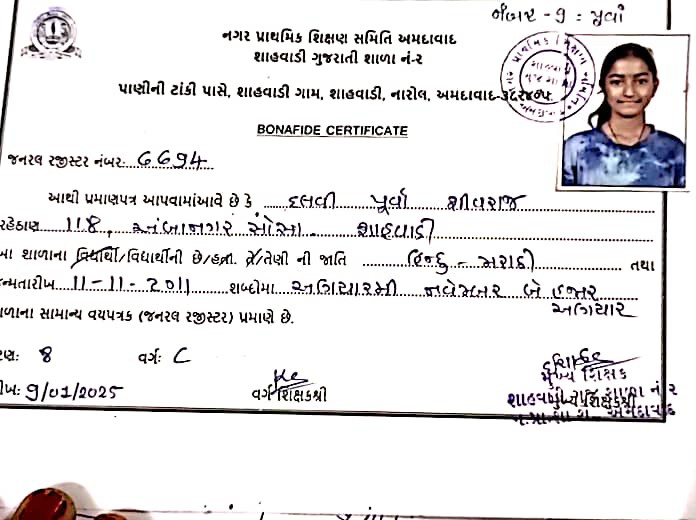 નંબર - 9 : પૂર્વા
નગર પ્રાથમિક શિક્ષણ સમિતિ અમદાવાદ
શાહવાડી ગુજરાતી શાળા નં-૨
પાણીની ટાંકી પાસે, શાહવાડી ગામ, શાહવાડી, નારોલ, અમદાવાદ-૩૮૨૪૦૫.
BONAFIDE CERTIFICATE
જનરલ રજીસ્ટર નંબર: 6694
આથી પ્રમાણપત્ર આપવામાંઆવે છે કે દલવી પૂર્વા શીવરાજ
રહેઠાણ 118, અંબાનગર સોસા. શાહવાડી
આ શાળાના વિદ્યાર્થી/વિદ્યાર્થીની છે/હતા. તે/તેણી ની જાતિ હિન્દુ - મરાઠી તથા
જન્મતારીખ 11-11-2011 શબ્દોમા અગિયારમી નવેમ્બર બે હજાર
અગિયાર
શાળાના સામાન્ય વયપત્રક (જનરલ રજીસ્ટર) પ્રમાણે છે.
રણ: 8 વર્ગ: C
ીખ: 9/01/2025 વર્ગ શિક્ષકશ્રી
મુખ્ય શિક્ષક